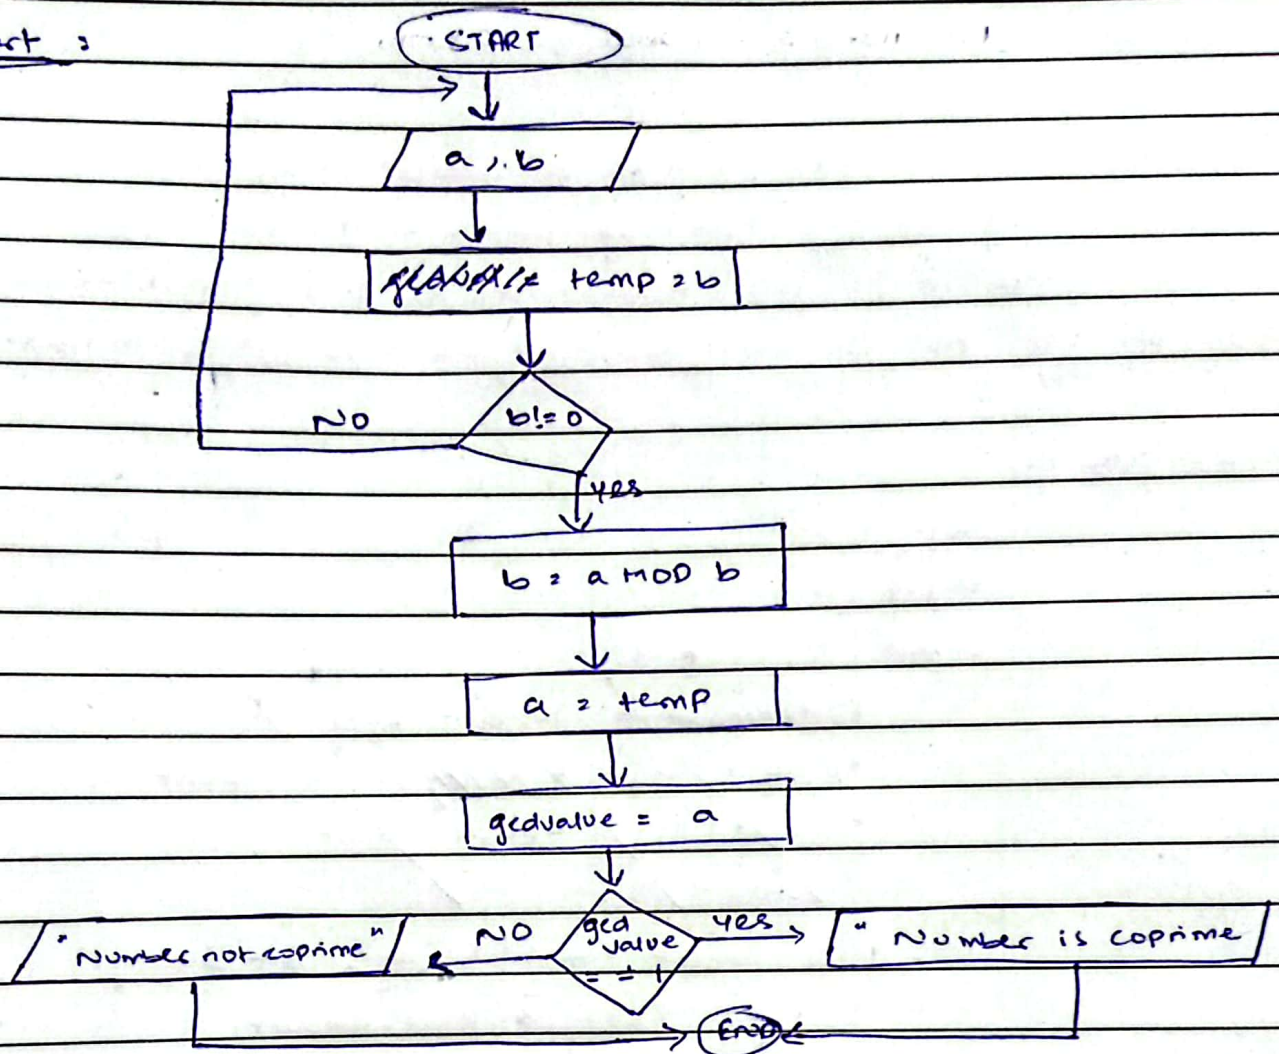 START
a, b
temp = b
b!= 0
NO
yes
b = a MOD b
a = temp
gcdvalue = a
gcd
value
== 1
NO
yes
"Number not coprime"
" Number is coprime
END